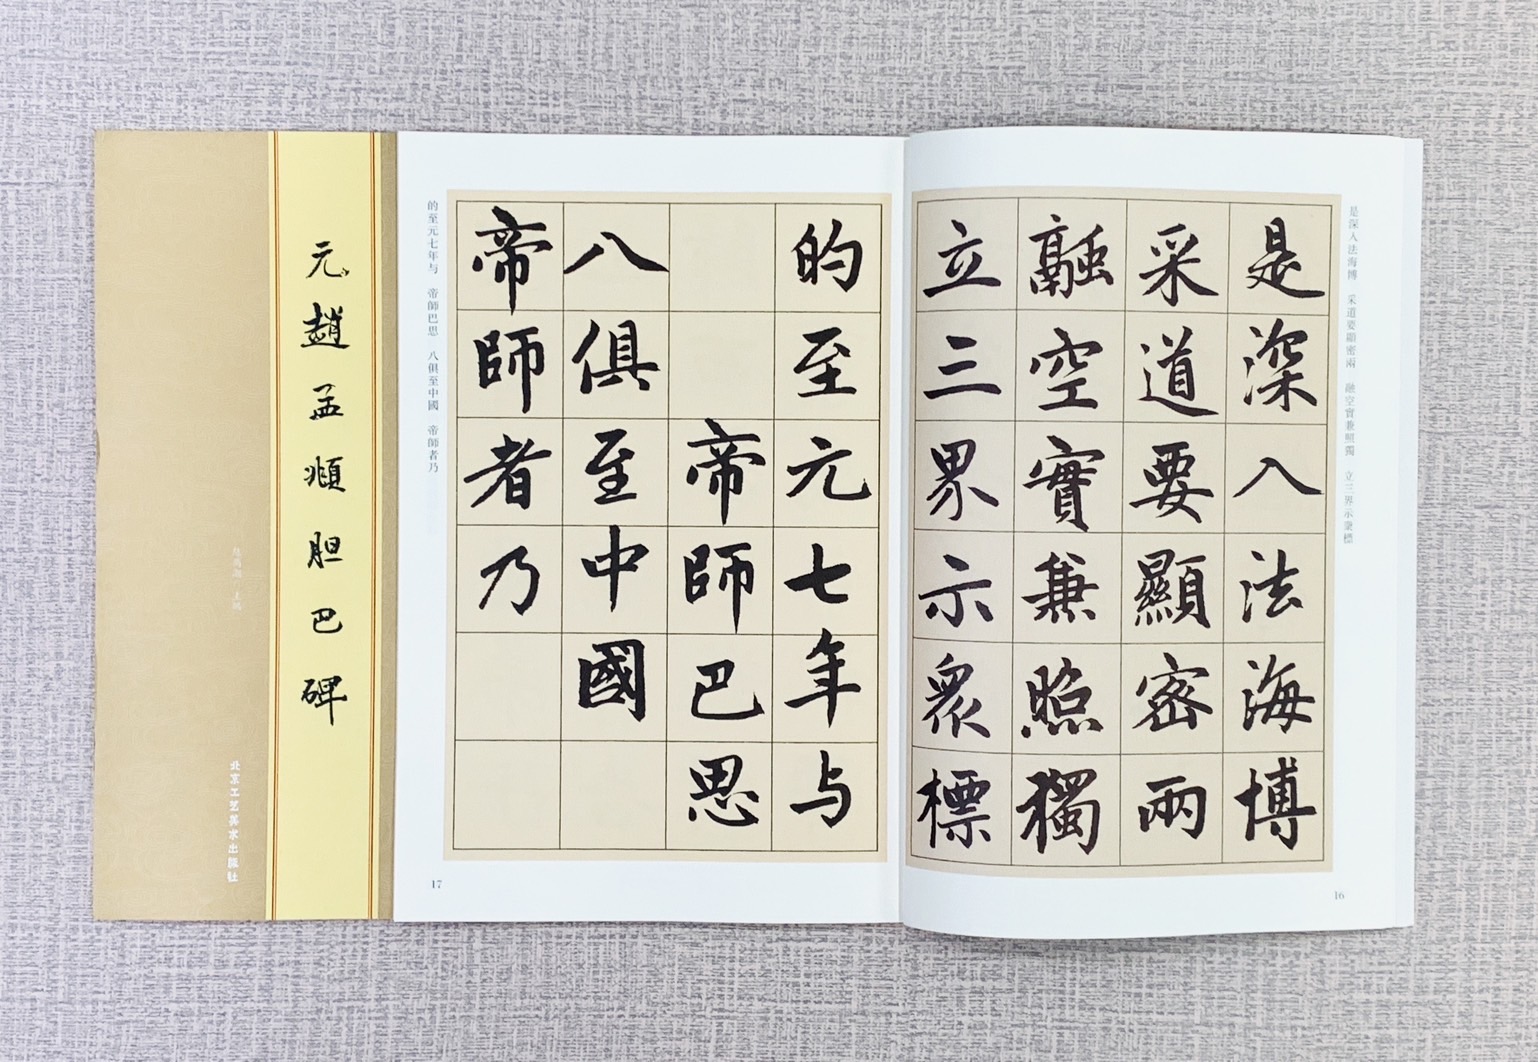 是深入法海博
采道要顯密兩
融空實兼照獨
立三界示衆標
是深入法海博　采道要顯密兩　融空實兼照獨　立三界示衆標
16
的至元七年与
帝師巴思
八俱至中國
帝師者乃
的至元七年与　帝師巴思　八俱至中國　帝師者乃
17
元趙孟頫胆巴碑
北京工艺美术出版社